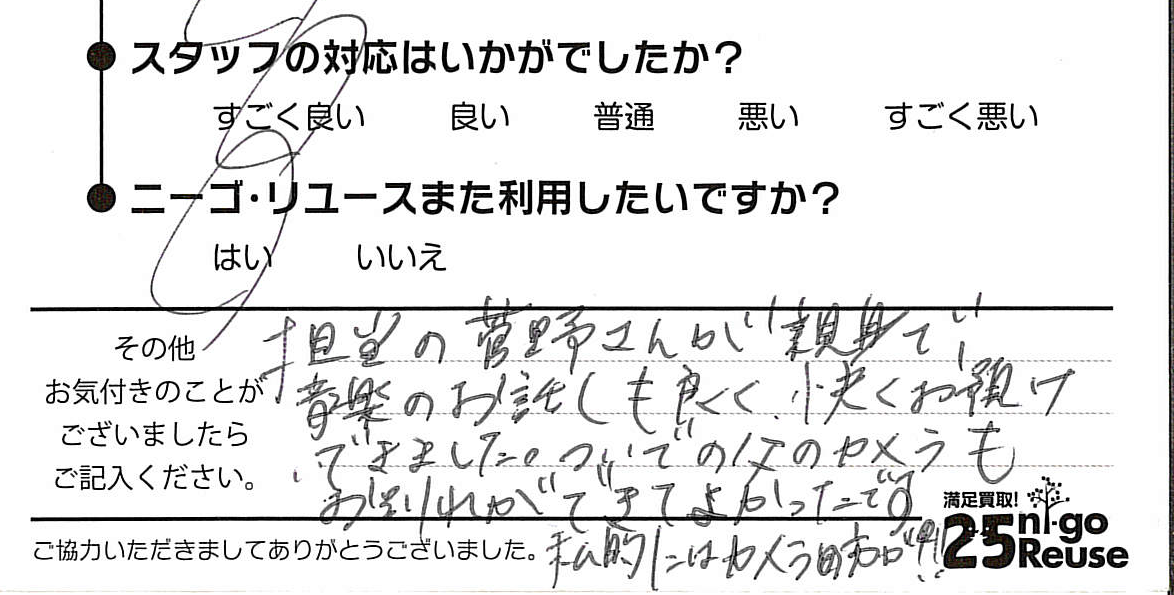 スタッフの対応はいかがでしたか?
すごく良い 良い 普通 悪い すごく悪い
ニーゴ・リユースまた利用したいですか?
はい いいえ
その他
お気付きのことが
ございましたら
ご記入ください。
担当の菅野さんが親身で
音楽のお話しも良く、快くお預け
できました。ついでの父のカメラも
お送りれができてよかったです
満足買取!
25 ni-go Reuse
ご協力いただきましてありがとうございました。
私的にはカメラ